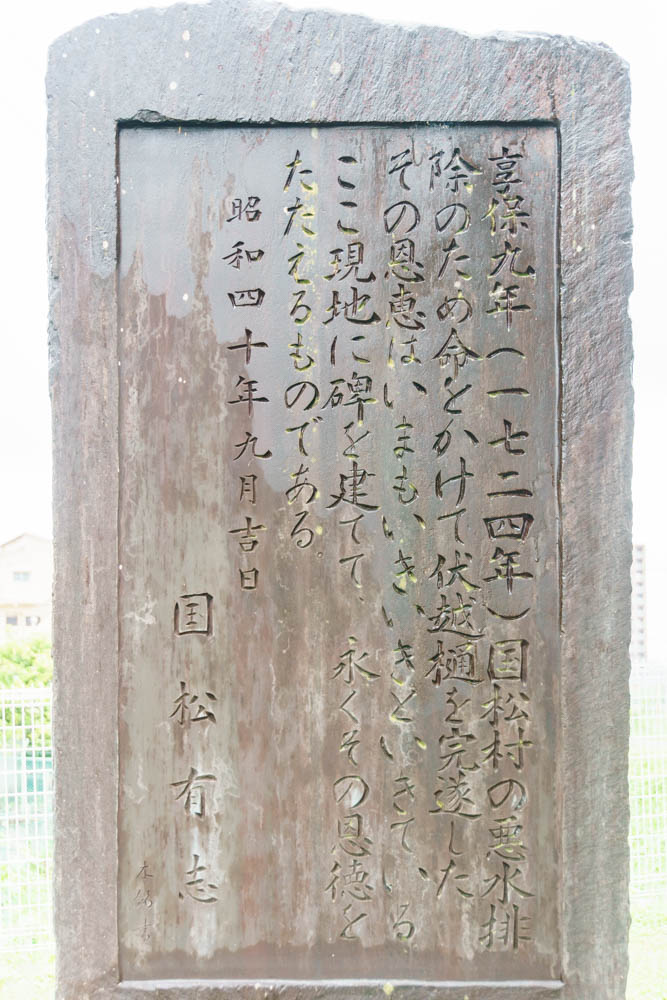 享保九年(一七二四年)国松村の悪水排
除のため命をかけて伏越樋を完遂した
その恩恵はいまもいきいきといきている
ここ現地に碑を建てて、永くその恩徳を
たたえるものである。
昭和四十年九月吉日
国松有志